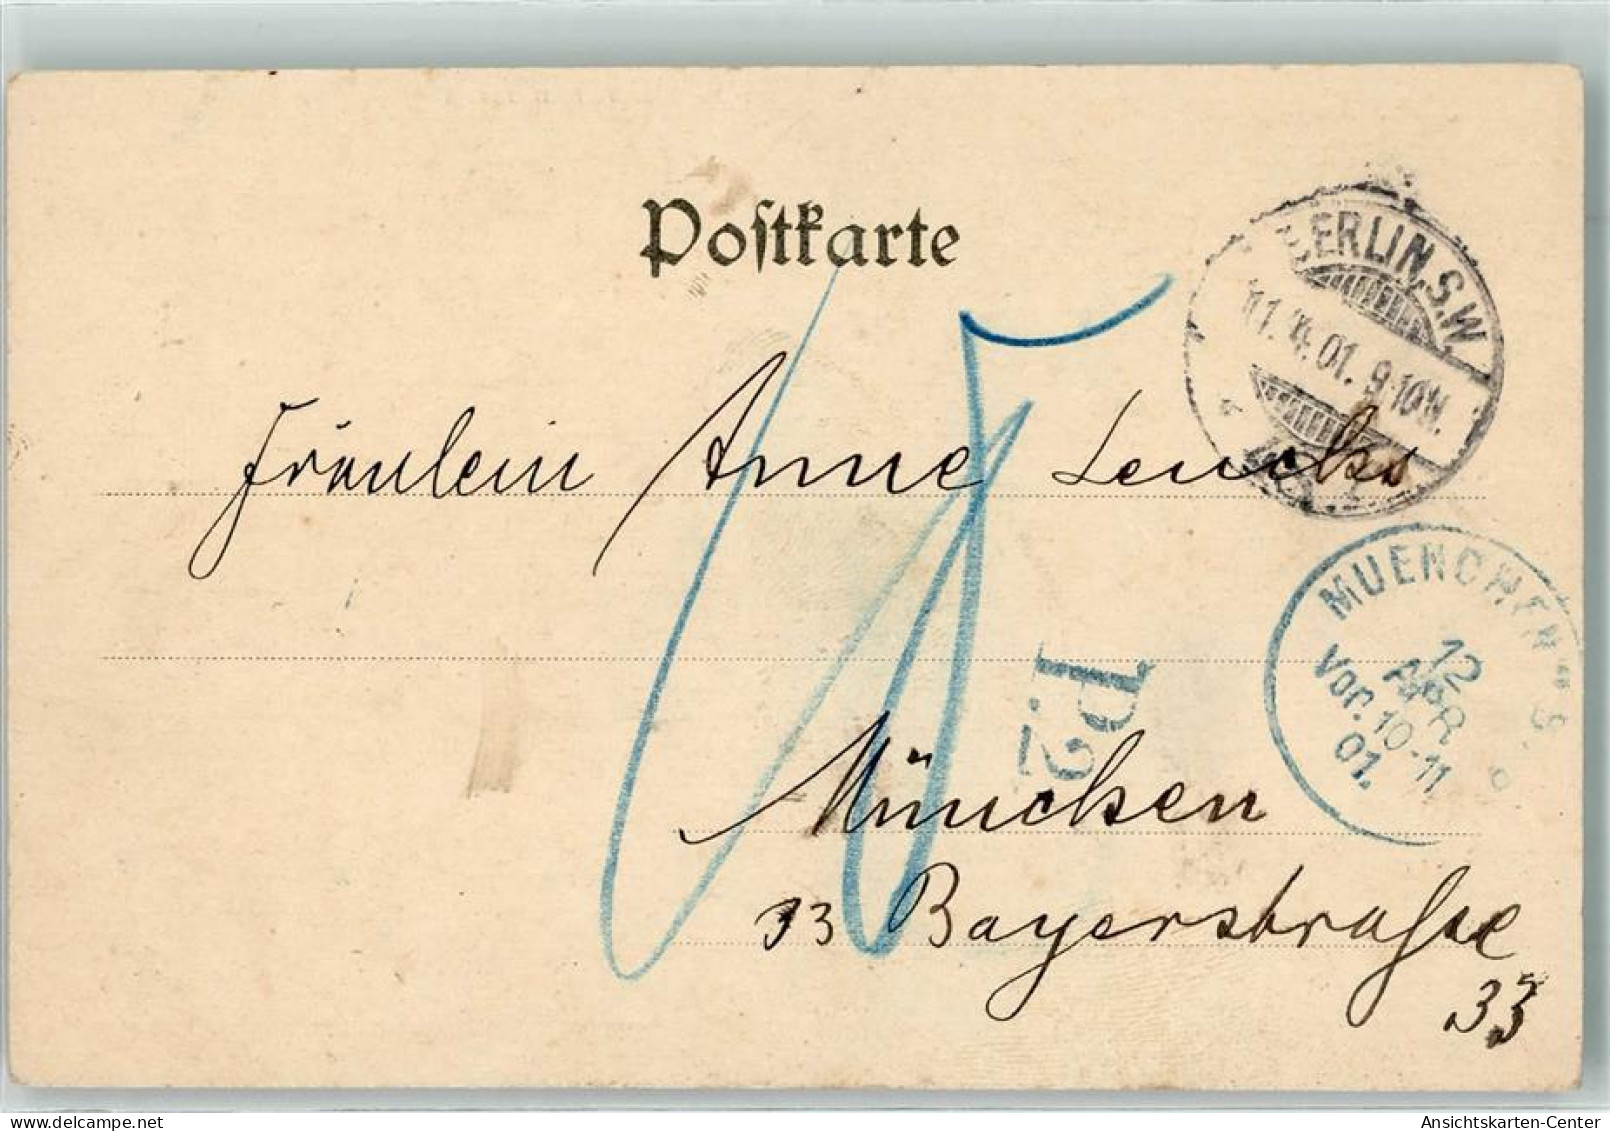 Postkarte
BERLIN.S.W.
11.4.01. 9-10N.
Fräulein Anne Lencks
MUENCHEN
12
APR
Vor.10-11
01.
P.2
München
33 Bayerstraße
33
Ansichtskarten-Center